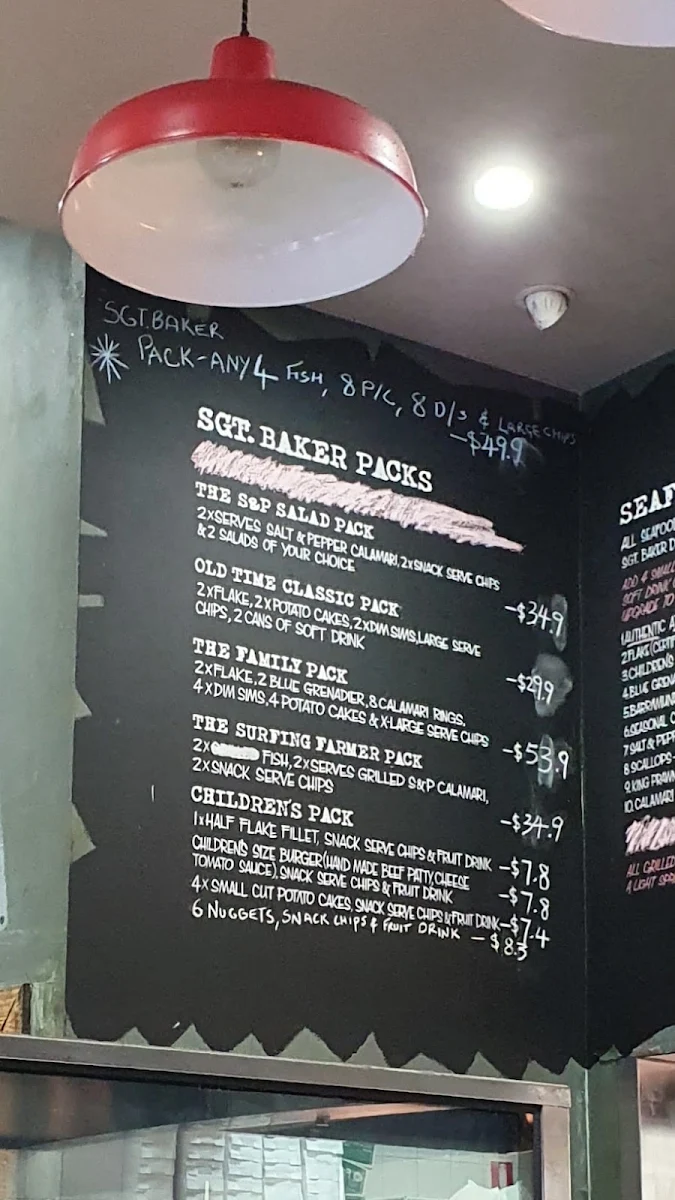 SGT. BAKER
PACK-ANY 4 FISH, 8 P/C, 8 D/S & LARGE CHIPS
-$49.9
SGT. BAKER PACKS
THE S&P SALAD PACK
2xSERVES SALT & PEPPER CALAMARI, 2xSNACK SERVE CHIPS
& 2 SALADS OF YOUR CHOICE
-$34.9
OLD TIME CLASSIC PACK
2xFLAKE, 2xPOTATO CAKES, 2xDIM SIMS, LARGE SERVE
CHIPS, 2 CANS OF SOFT DRINK
-$29.9
THE FAMILY PACK
2xFLAKE, 2 BLUE GRENADIER, 8 CALAMARI RINGS,
4xDIM SIMS, 4 POTATO CAKES & X-LARGE SERVE CHIPS
-$53.9
THE SURFING FARMER PACK
2x FISH, 2xSERVES GRILLED S&P CALAMARI,
2xSNACK SERVE CHIPS
-$34.9
CHILDREN'S PACK
1xHALF FLAKE FILLET, SNACK SERVE CHIPS & FRUIT DRINK -$7.8
CHILDREN'S SIZE BURGER (HAND MADE BEEF PATTY, CHEESE
TOMATO SAUCE), SNACK SERVE CHIPS & FRUIT DRINK -$7.8
4xSMALL CUT POTATO CAKES, SNACK SERVE CHIPS & FRUIT DRINK -$7.4
6 NUGGETS, SNACK CHIPS & FRUIT DRINK - $8.5
SEAF
ALL SEAFOO
SGT. BAKER D
ADD 4 SMALL
SOFT DRINK
UPGRADE TO
1.AUTHENTIC A
2.FLAKE (CERTI
3.CHILDREN'S
4.BLUE GREN
5.BARRAMUN
6.SEASONAL C
7.SALT & PEPP
8.SCALLOPS -
9.KING PRAWN
10.CALAMARI
ALL GRILLED
A LIGHT SPR